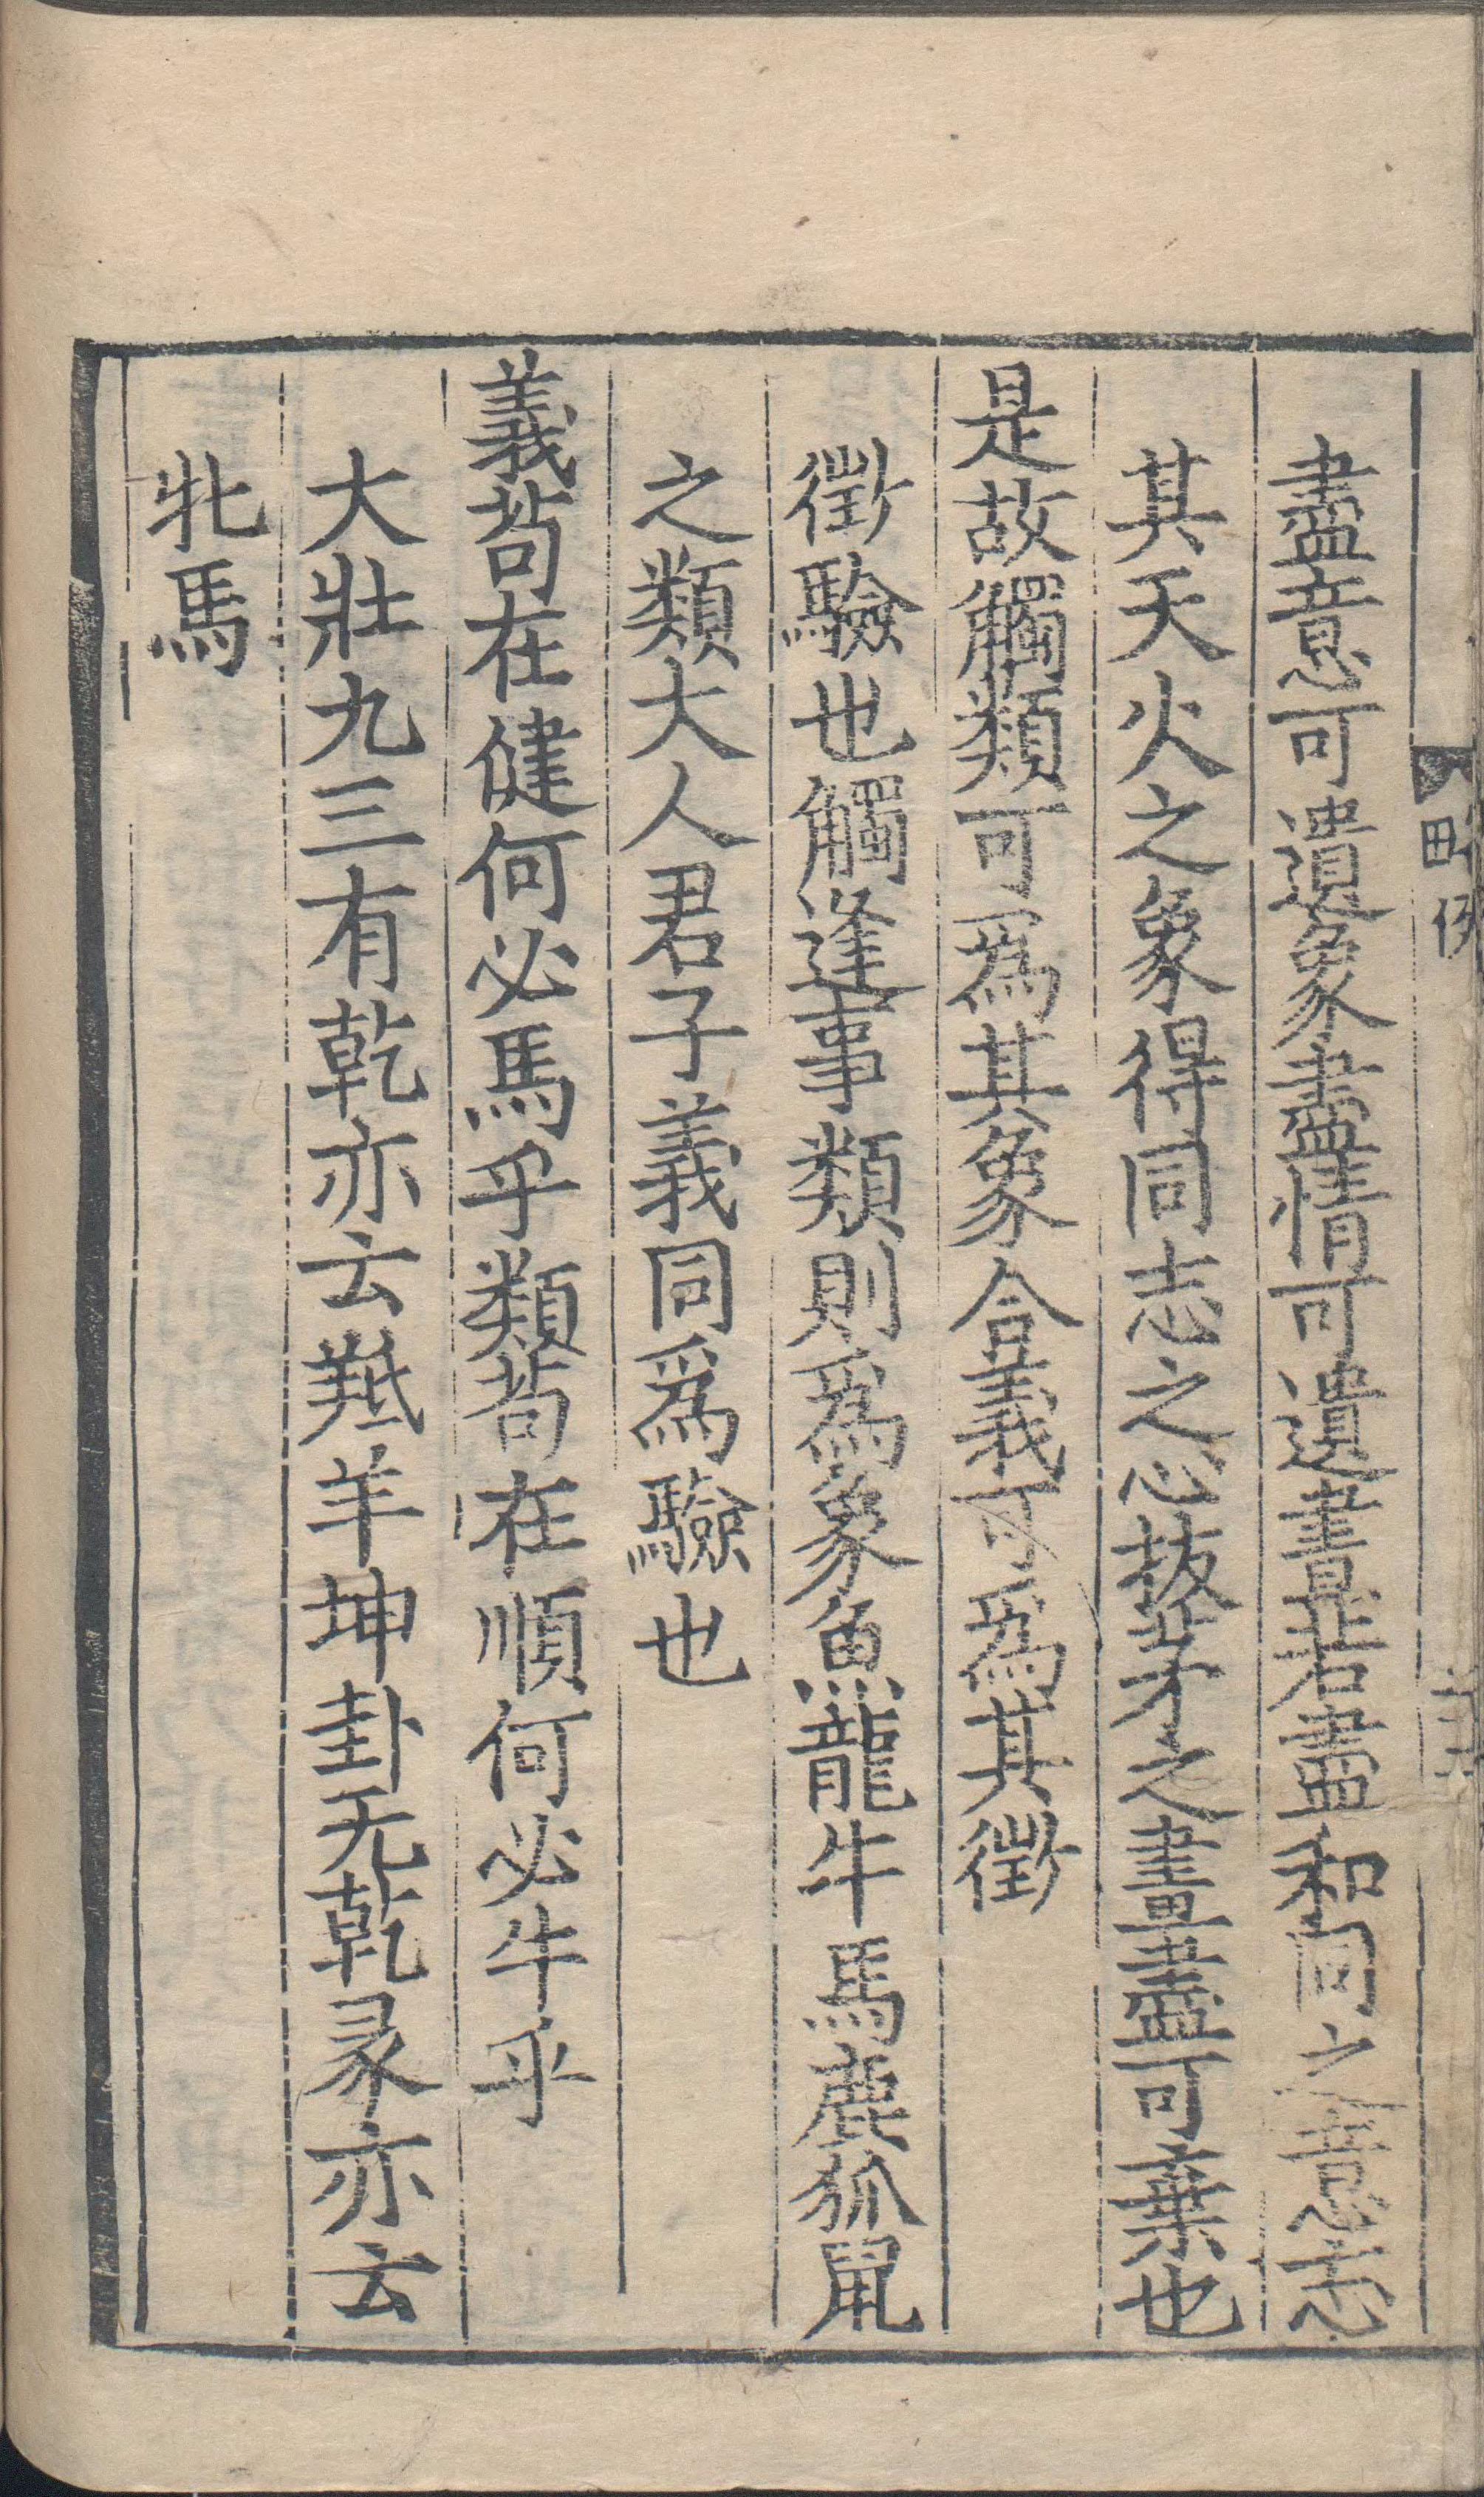 畧例
盡意可遺象盡情可遺畫若盡和同之意忘
其天火之象得同志之心拔茅之畫盡可棄也
是故觸類可爲其象合義可爲其徵
徵驗也觸逢事類則爲象魚龍牛馬鹿狐鼠
之類大人君子義同爲驗也
義苟在健何必馬乎類苟在順何必牛乎
大壯九三有乾亦云羝羊坤卦无乾彖亦云
牝馬